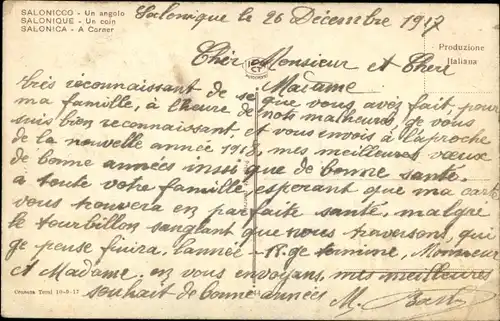 SALONICCO - Un angolo
SALONIQUE - Un coin
SALONICA - A Corner
Salonique le 26 Décembre 1917
Produzione
Italiana
Chér Monsieur et Chere
Madame
très reconnaissant de se que vous avez fait pour
ma famille, à l'heure de nots malheures je vous
suis bien reconnaissant, et vous envois à l'aproche
de la nouvelle année 1918, mes meilleures vœux
de bonne années insi que de bonne santé.
à toute votre famille, esperant que ma carte
vous trouvera en parfaite santé, malgré
le tourbillon sanglant que nous traversons, qui
je pense finira, l'année - 18. se termine, Monsieur
et Madame. en vous envoyans, mes meilleures
souhait de bonne années
M.
10-9-17